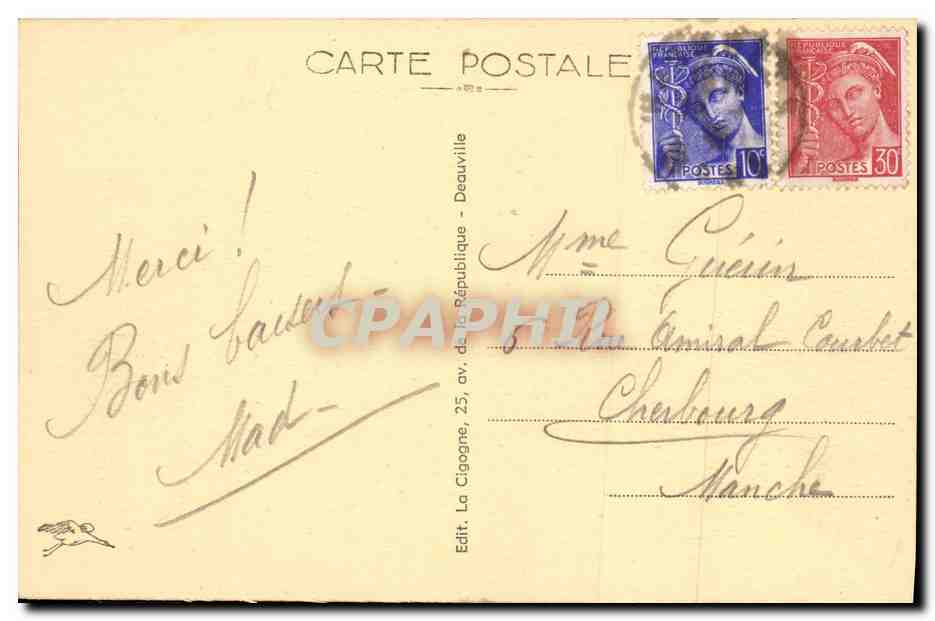 CARTE POSTALE
RÉPUBLIQUE
FRANÇAISE
POSTES 10c
RÉPUBLIQUE
FRANÇAISE
POSTES 30c
Merci !
Bons baisers -
Mad -
Edit. La Cigogne, 25, av. de la République - Deauville
Mme Guérin
6 Rue Amiral Courbet
Cherbourg
Manche
CPAPHIL